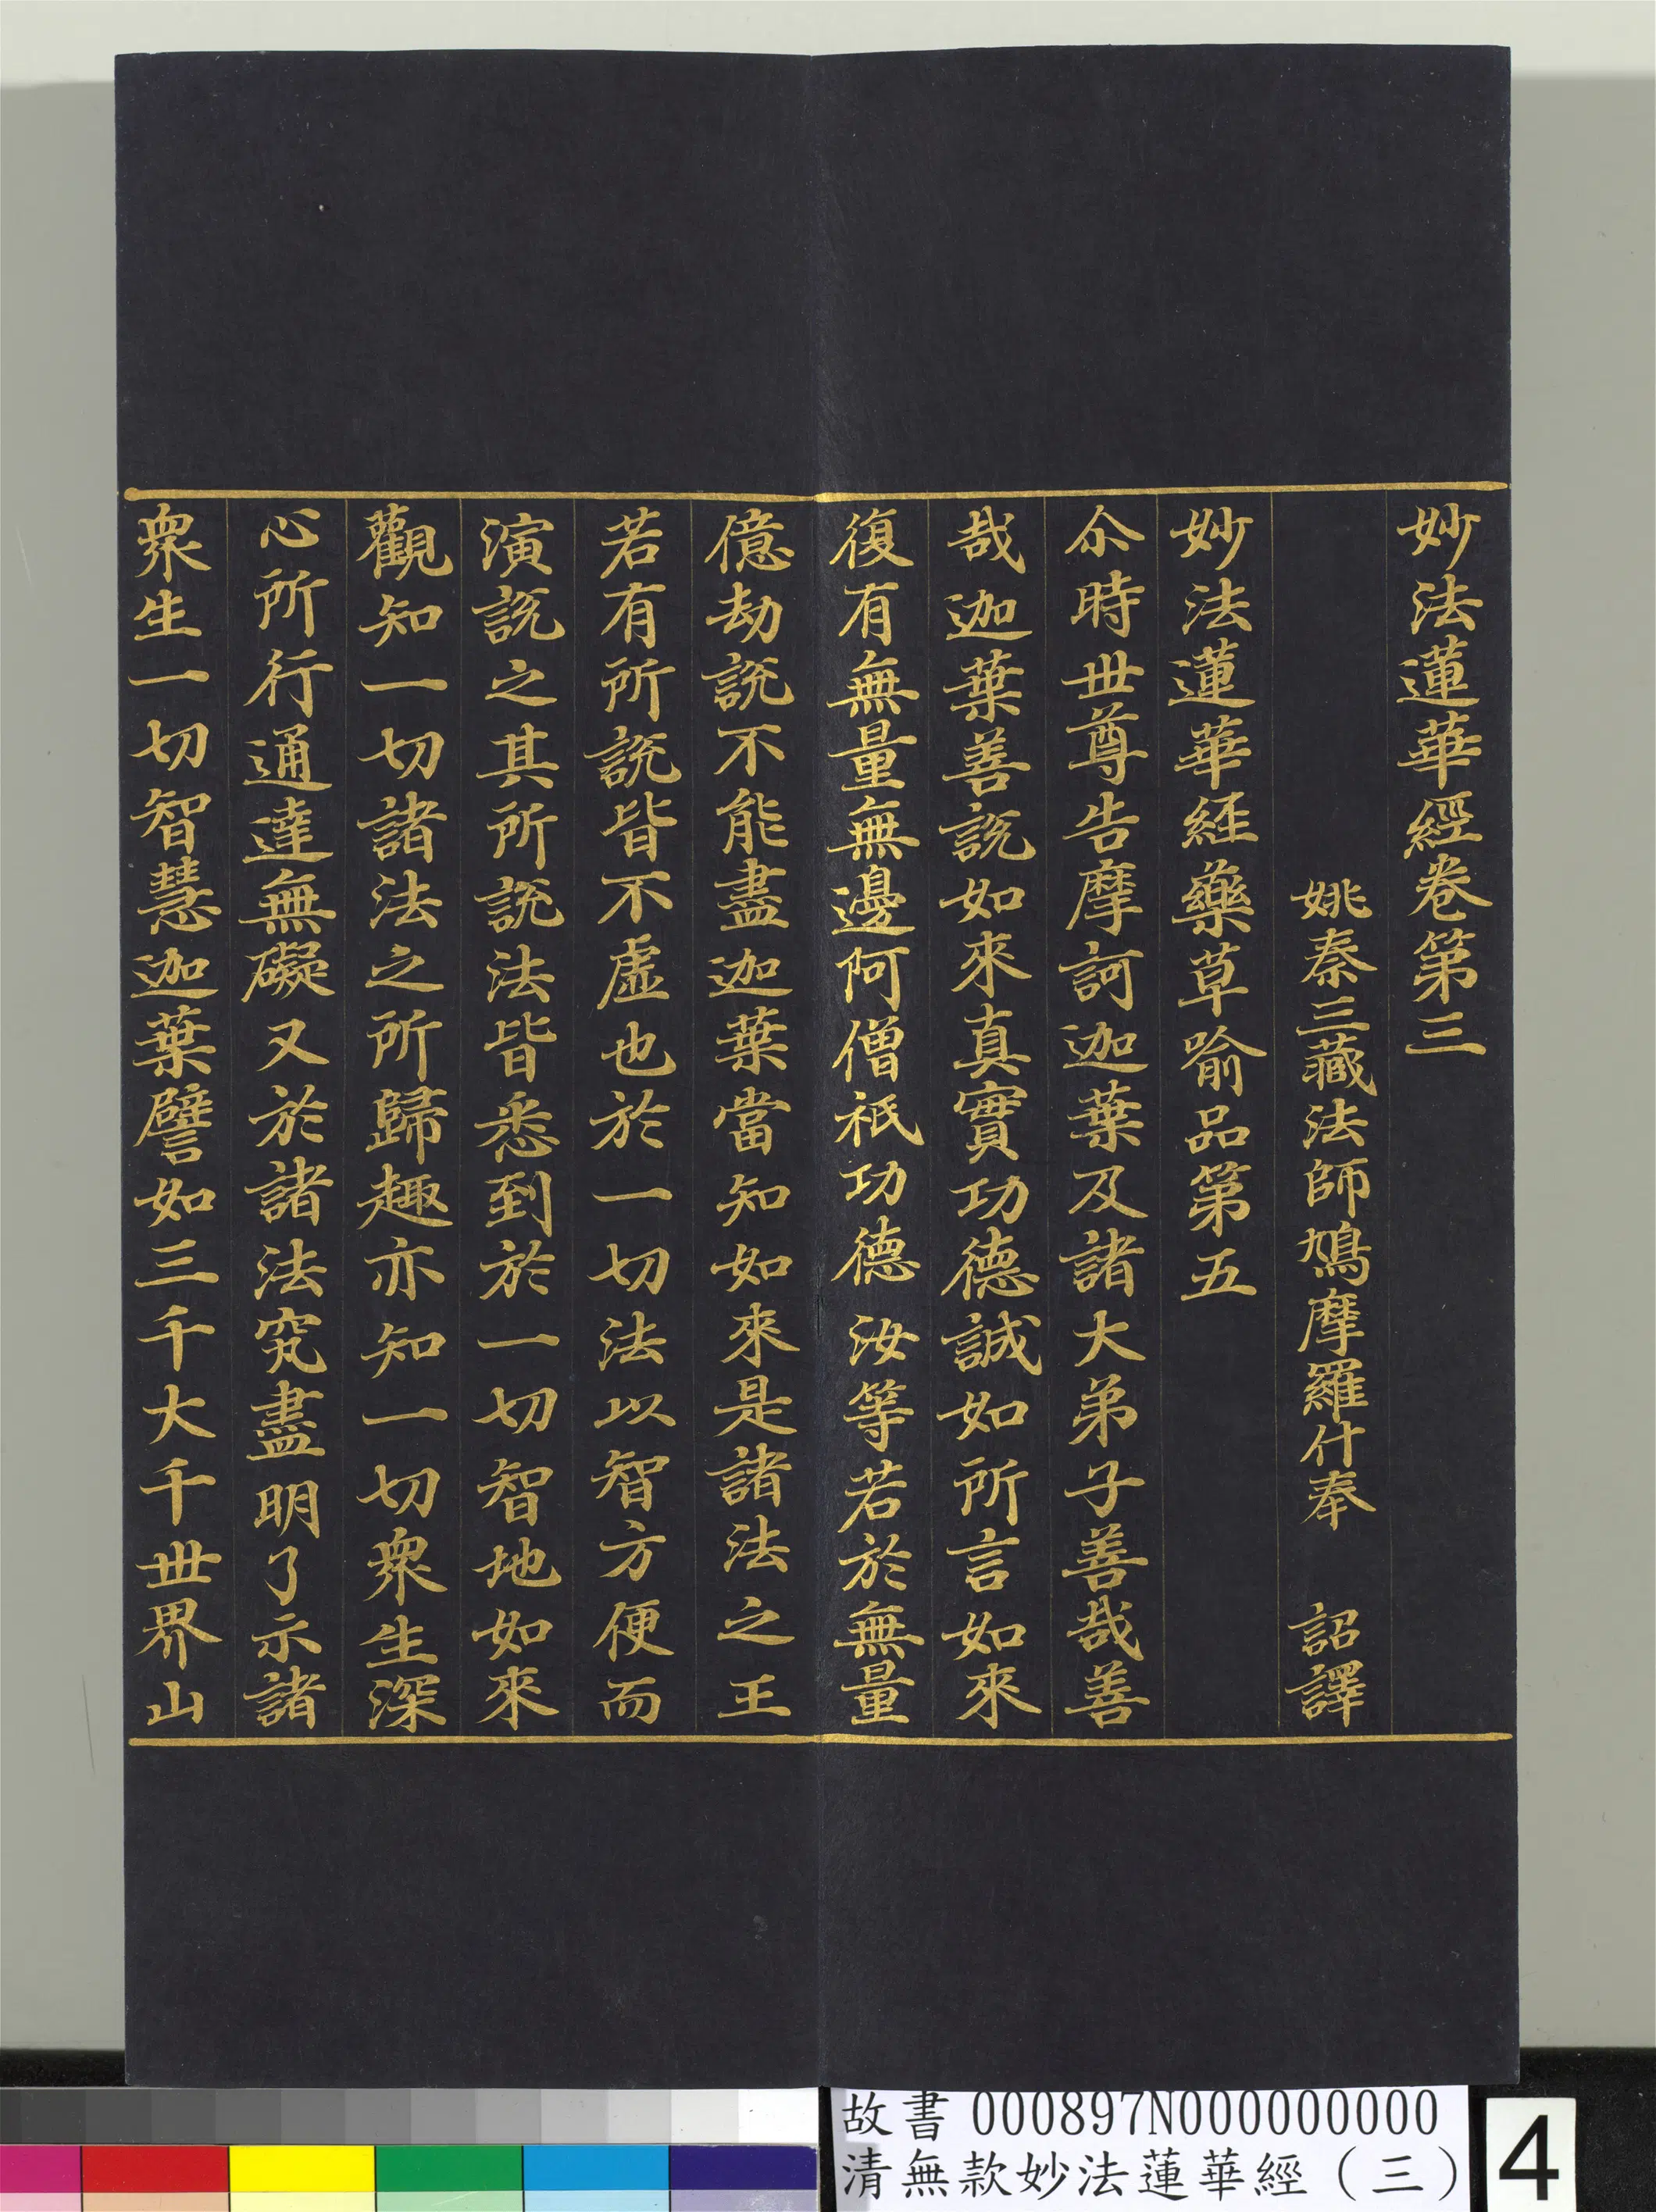 妙法蓮華經卷第三
姚秦三藏法師鳩摩羅什奉　詔譯
妙法蓮華経藥草喻品第五
尒時世尊告摩訶迦葉及諸大弟子善哉善
哉迦葉善說如來真實功德誠如所言如來
復有無量無邊阿僧祇功德汝等若於無量
億劫說不能盡迦葉當知如來是諸法之王
若有所說皆不虛也於一切法以智方便而
演說之其所說法皆悉到於一切智地如來
觀知一切諸法之所歸趣亦知一切衆生深
心所行通達無礙又於諸法究盡明了示諸
衆生一切智慧迦葉譬如三千大千世界山
故書 000897N000000000
清無款妙法蓮華經（三）
4